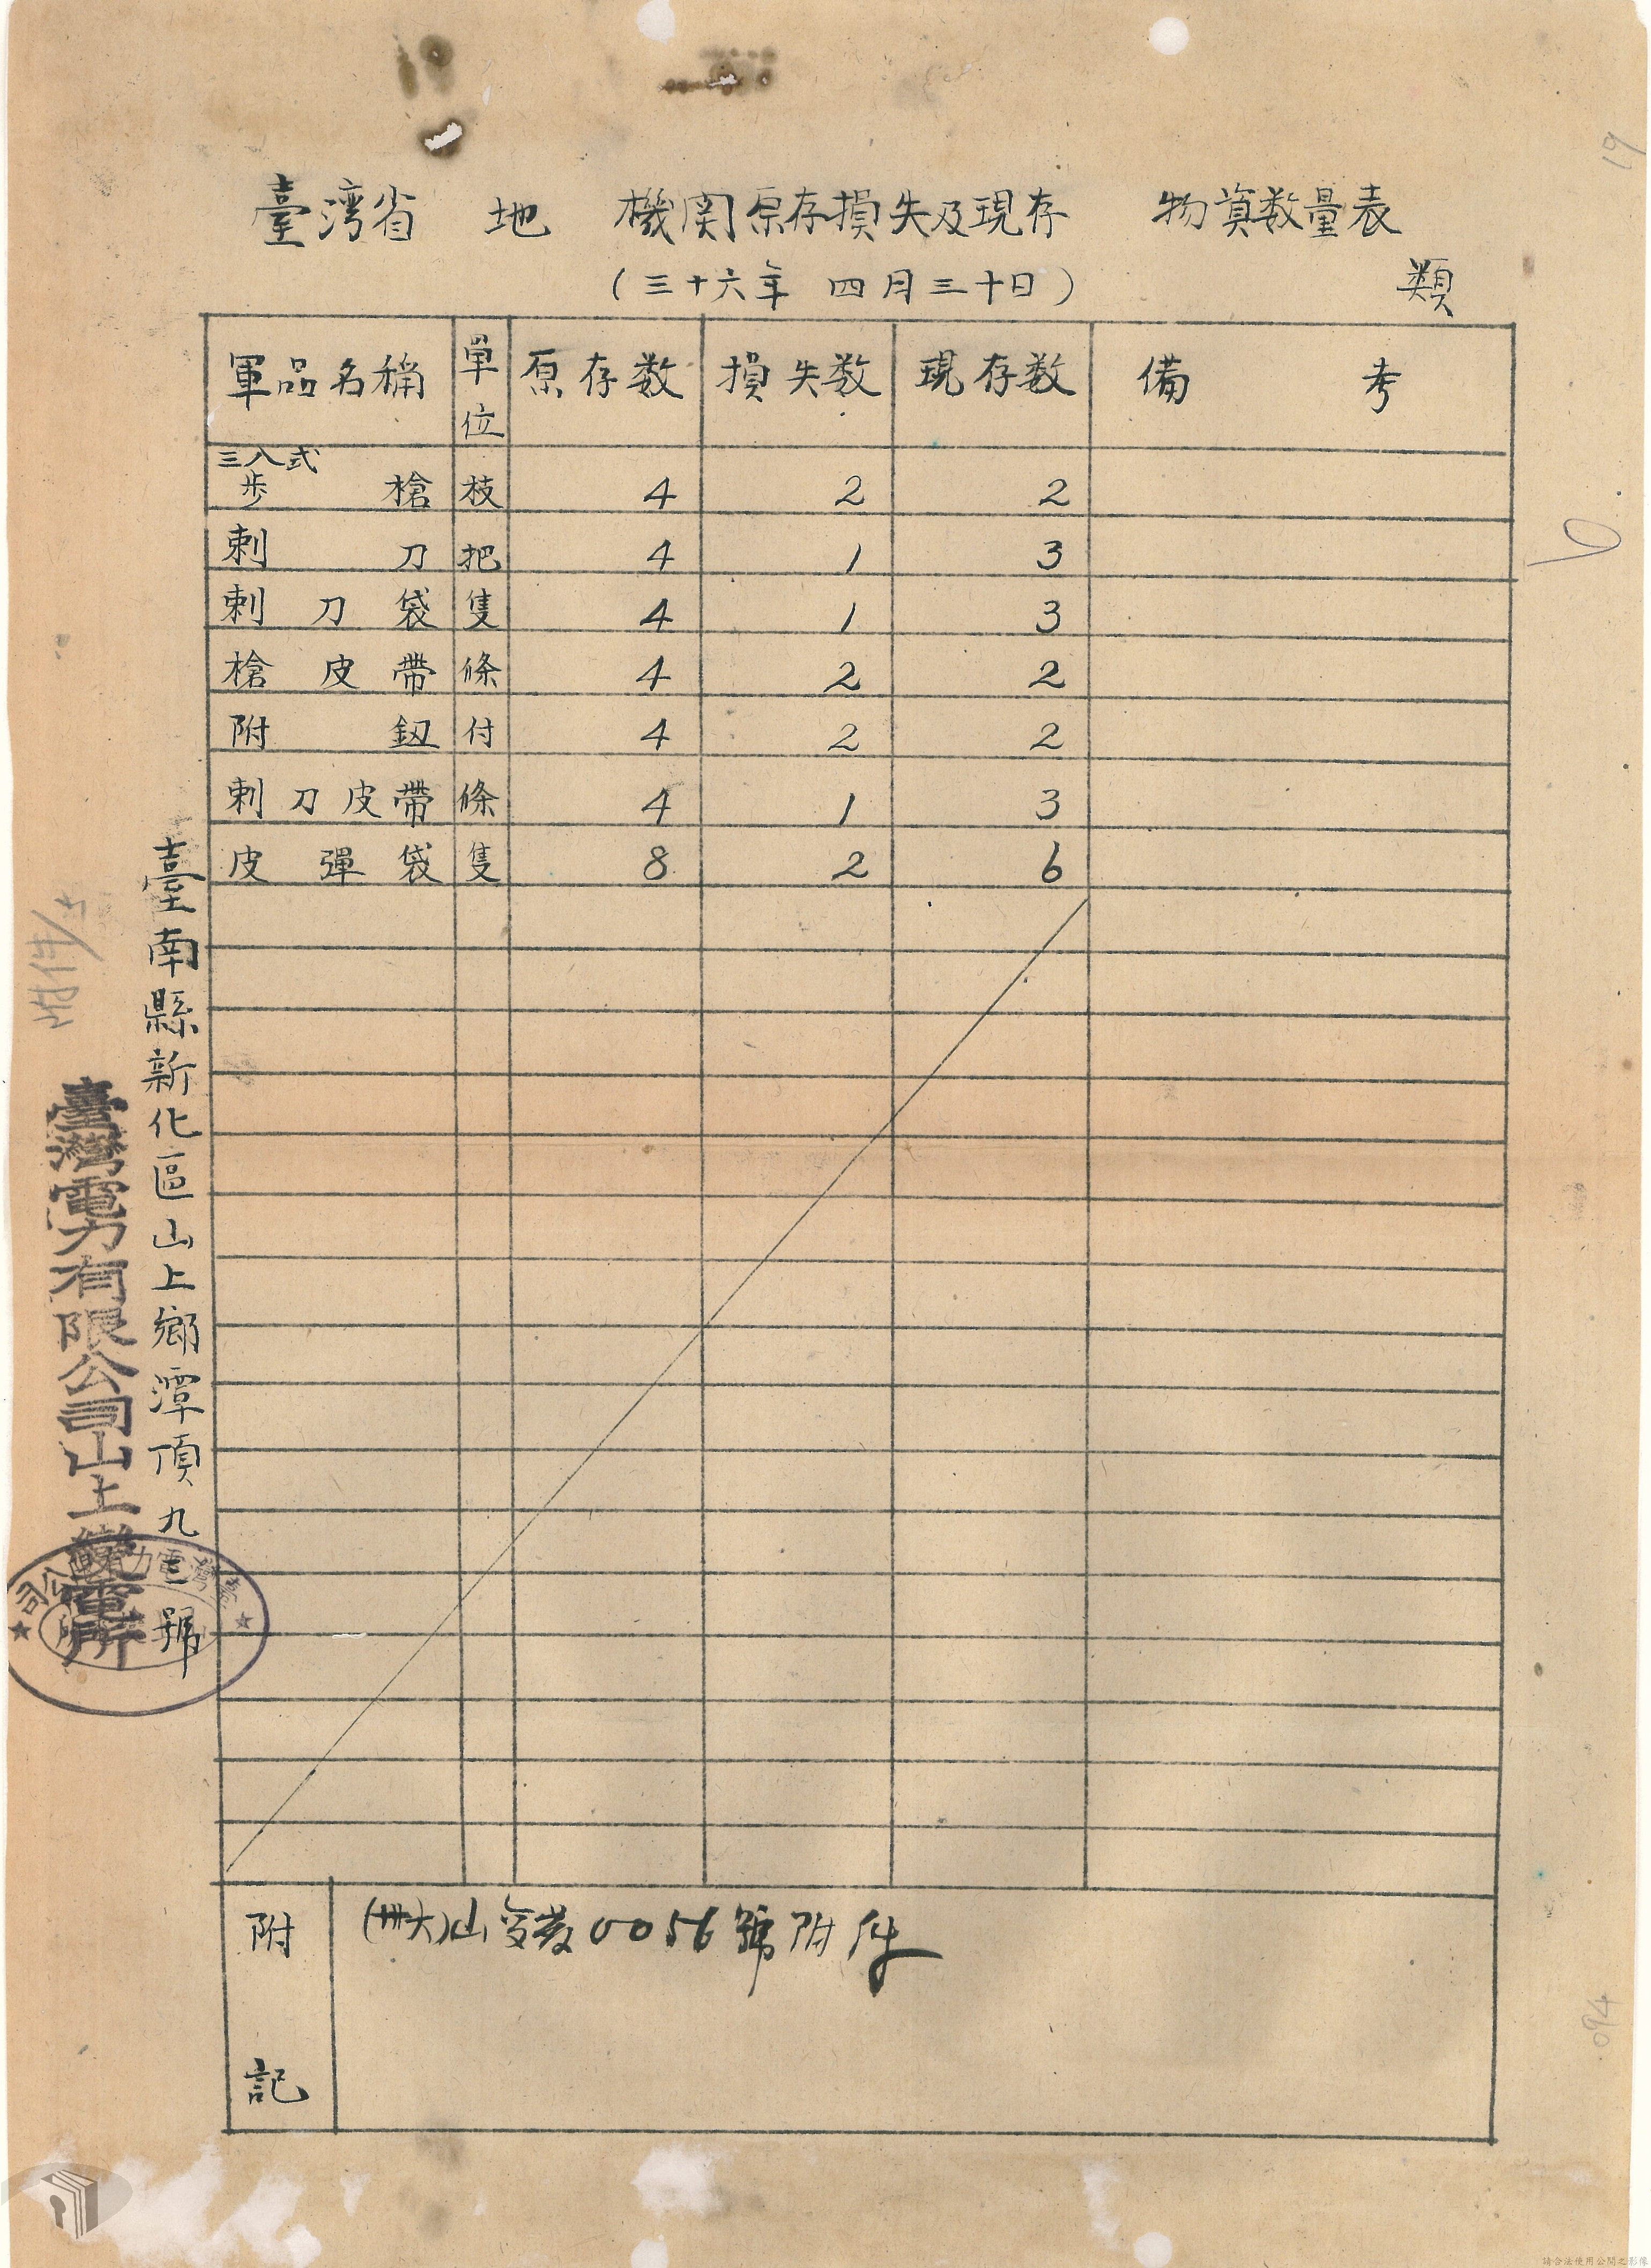 19
臺湾省 地 機関原存損失及現存 物資数量表
類
(三十六年 四月三十日)
軍品名稱 單位 原存数 損失数 現存数 備考
三八式步槍 枝 4 2 2
刺刀 把 4 1 3
刺刀袋 隻 4 1 3
槍皮帶 條 4 2 2
附釼 付 4 2 2
刺刀皮帶 條 4 1 3
皮彈袋 隻 8 2 6
附記 0056號附件
臺南縣新化區山上鄉潭頂九三號
附件
臺灣電力有限公司山上變電所
臺灣電力有限公司
094
請合法使用公開之影像